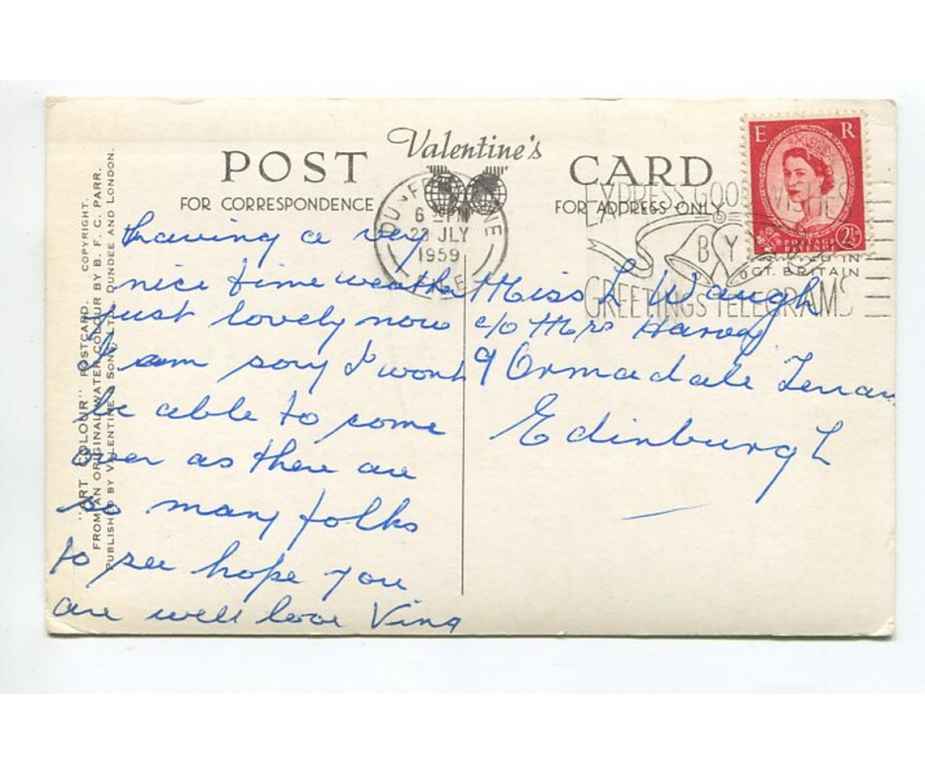 POST Valentine's CARD
FOR CORRESPONDENCE
FOR ADDRESS ONLY
"ART COLOUR" POSTCARD. COPYRIGHT.
FROM AN ORIGINAL WATER COLOUR BY B. F. C. PARR.
PUBLISHED BY VALENTINE & SONS, LTD., DUNDEE AND LONDON.
E R
2½
6
23 JLY
1959
FIFE
EXPRESS GOOD WISHES
BY
GREETINGS TELEGRAMS
IN
GT. BRITAIN
having a very
nice time weather
just lovely now
I am sory I wont
be able to come
over as there are
so many folks
to see hope you
are well love Vina
Miss L Waugh
c/o Mrs Harvey
9 Ormadale Terrace
Edinburgh